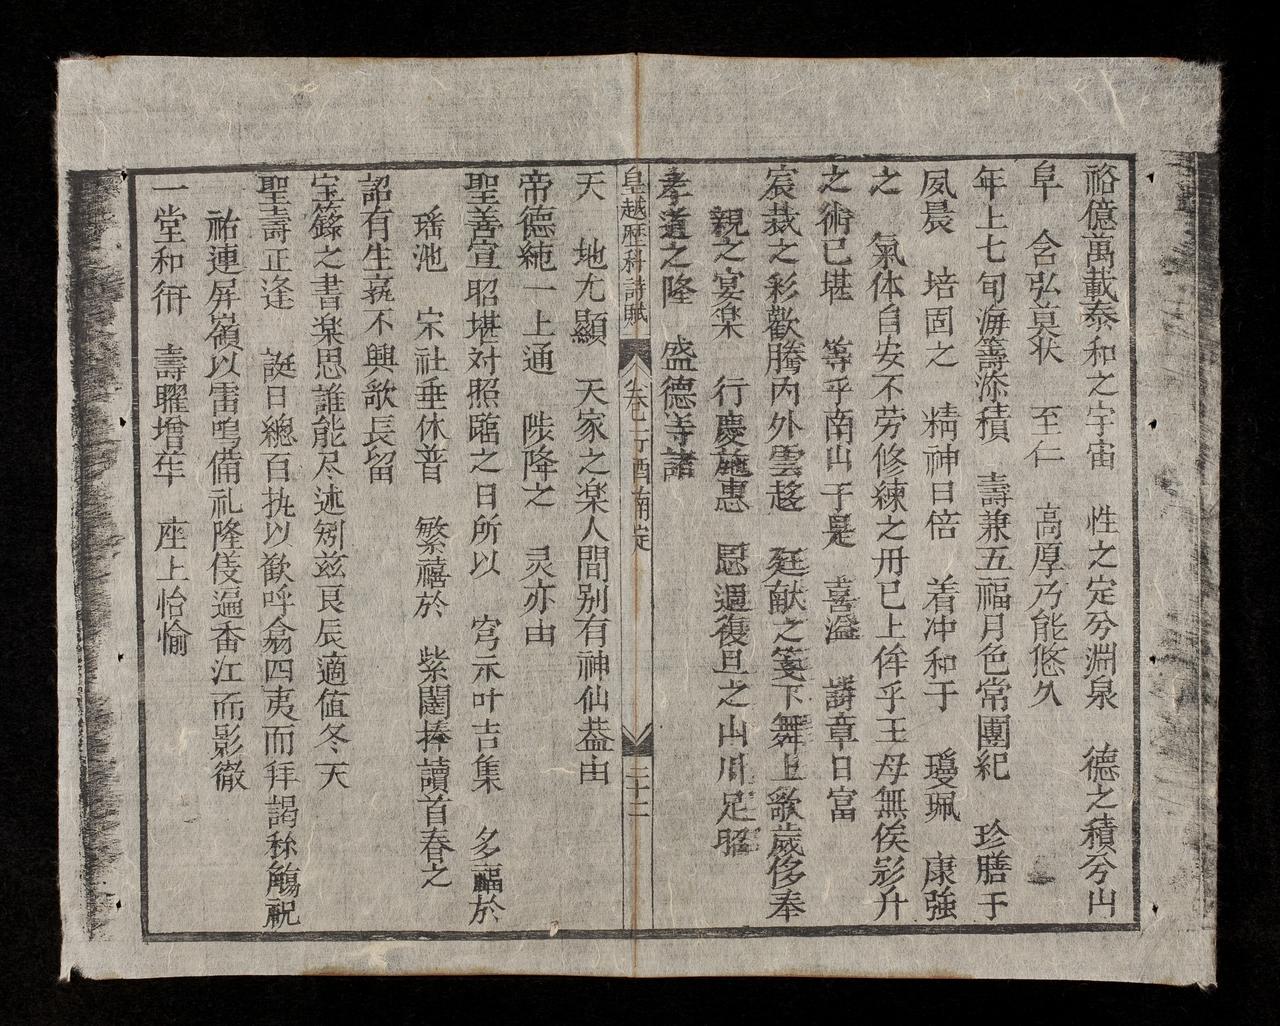 裕億萬載泰和之宇宙 性之定兮淵泉 德之積兮山
阜 含弘莫状 至仁 高厚乃能悠久
年上七旬海籌添積 壽兼五福月色常團紀 珍膳于
夙晨 培固之 精神日倍 着冲和于 瓊珮 康強
之 氣体自安不劳修練之丹已上侔乎王母無俟彭升
之術已堪 等乎南山于是 喜溢 璘章日富
宸裁之彩歡騰内外雲趍 廷献之箋下舞上歌歲侈奉
親之宴楽 行慶施惠 恩週復旦之山川足昭
孝道之隆 盛德寺諸
皇越歴科詩賦 卷 二十二
天 地尤顯 天家之楽人間别有神仙葢由
帝德純一上通 陟降之 灵亦由
聖善宣昭堪対照臨之日所以 穹示叶吉集 多福於
瑶池 宋社垂休普 繁禧於 紫闥捧讀首春之
詔有生孰不興歌長留
宝籙之書楽思誰能尽述矧兹良辰適值冬天
聖壽正逢 誕日總百执以歓呼翕四夷而拜謁稱觴祝
祐連屏嶺以雷鳴備礼隆伎遍香江而影徹
一堂和衎 壽曜增年 座上怡愉